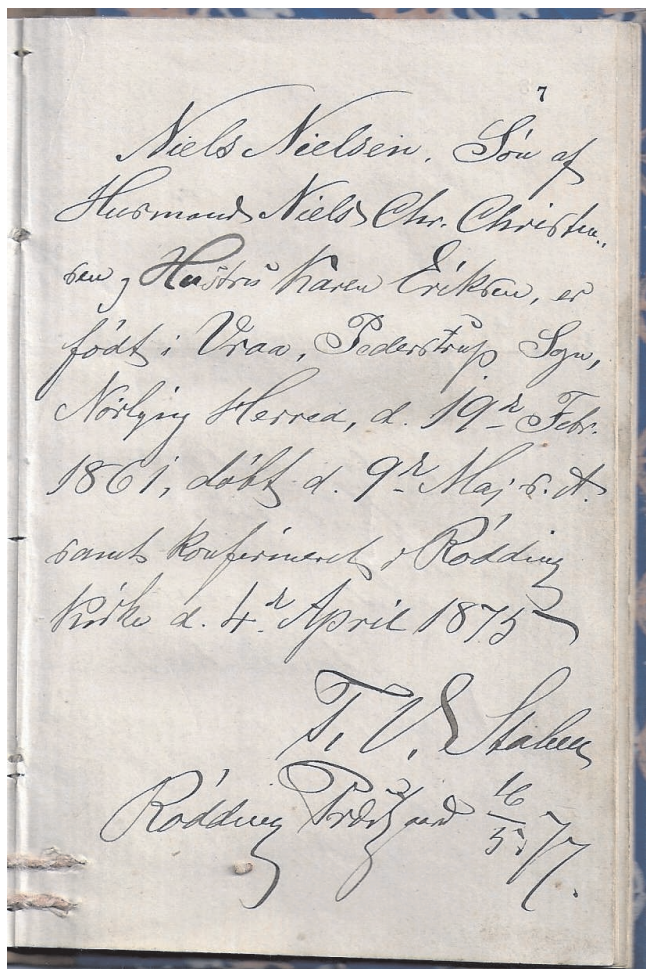 7
Niels Nielsen, Søn af
Husmand Niels Chr. Christen-
sen og Hustru Karen Eriksen, er
født i Vraa, Pederstrup Sogn,
Nørlyng Herred, d. 19de Febr.
1861, døbt d. 9de Maj s. A.
samt konfirmeret i Rødding
Kirke d. 4de April 1875
T. V.
Rødding Præstgaard 16/5 77.